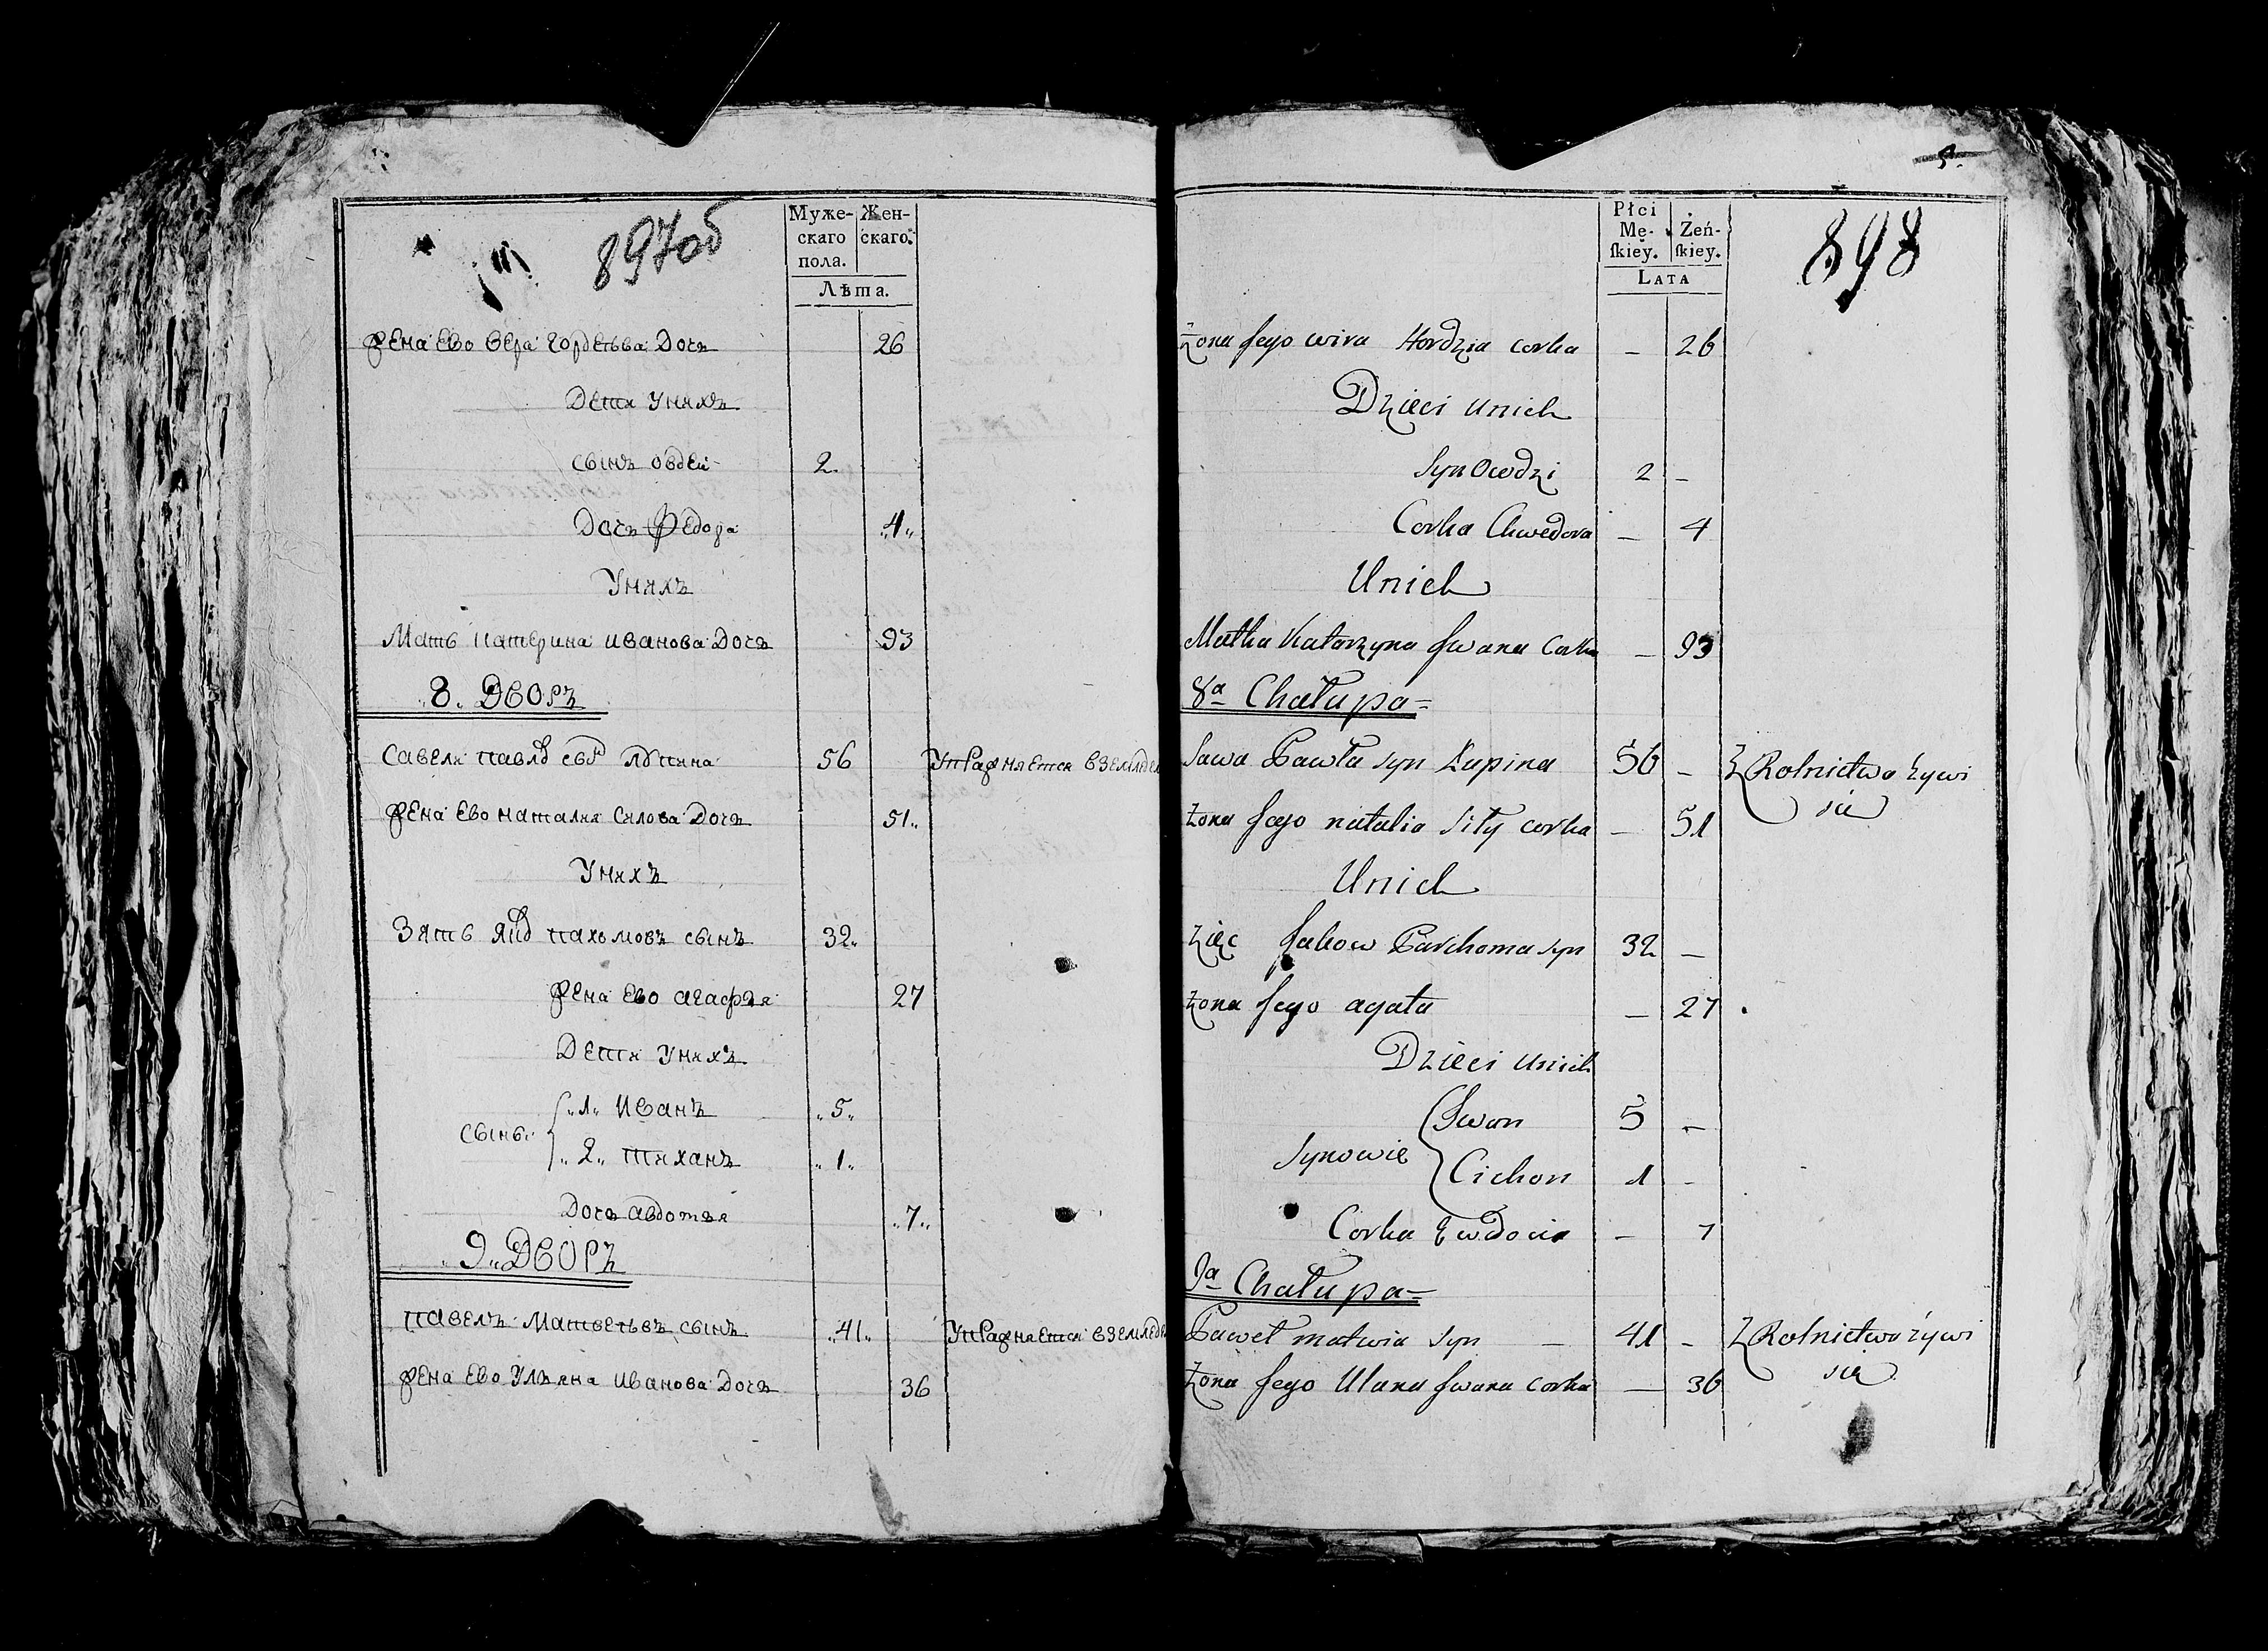 897об
Муже-
скаго
пола.
Жен-
скаго.
Лѣта.
жена ево вера гордеѣва дочь 26
дети унихъ
сынъ овдей 2.
дочь Федора „4„
унихъ
Мать катерина иванова дочь 93
8. ДВОРЪ
Савели павло сынъ лупина 56 упражняется вземледел
жена ево наталия силова дочь 51„
унихъ
Зять яко пахомовъ сынъ 32„
жена ево агафия 27
дети унихъ
сыны „1„ иванъ „5„
„2„ тиханъ „1„
дочь авдотья „7„
„9„ ДВОРЪ
павелъ матвеѣвъ сынъ „41„ упражняется вземледе
жена ево ульяна иванова дочь 36
5.
898
Płci
Mę-
ſkiey.
Żeń-
ſkiey.
LATA
Żona Jego wira Hordzia corka – 26
Dzieci unich
Syn Owdzi 2 –
Corka Chwedora – 4
Unich
Matka Katarzyna Jwana Corka – 93
8a Chałupa =
Sawa Pawła syn Łupina 56 – Z Rolnictwa żywi
się
żona Jego natalia Siły corka – 51
Unich
Zięc Jakow Parchoma syn 32 –
żona Jego agata – 27
Dzieci unich
Synowie Jwan 5 –
Cichon 1 –
Corka Ewdocia – 7
9a Chałupa =
Paweł matwia Syn – 41 – Z Rolnictwa żywi
się
Żona Jego Ulana Jwana corka – 36